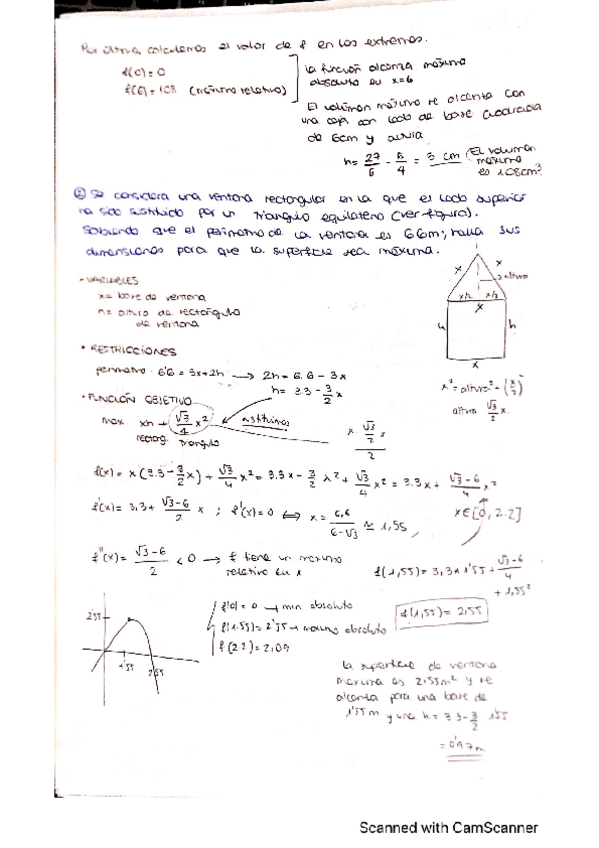 Por último, calculamos el valor de f en los extremos.
f(0) = 0
f(6) = 108 (máximo relativo)
la función alcanza máximo
absoluto en x=6
El volumen máximo se alcanza con
una caja con lado de base cuadrada
de 6cm y altura
h = 27/6 - 6/4 = 3 cm (El volumen
máximo
es 108cm³
② Se considera una ventana rectangular en la que el lado superior
ha sido sustituido por un triangulo equilatero (ver figura).
Sabiendo que el perimetro de la ventana es 6'6m; halla sus
dimensiones para que la superficie sea máxima.
• VARIABLES
x = base de ventana
h = altura de rectángulo
de ventana
x x
altura
x/2 x/2
x
h h
x
• RESTRICCIONES
perimetro · 6'6 = 3x+2h → 2h = 6.6 - 3x
h = 3.3 - 3/2 x
x² = altura² + (x/2)²
altura √3/2 x
• FUNCIÓN OBJETIVO
max xh + √3/4 x²
sustituimos
rectang. triangulo
x · √3/2 x
2
f(x) = x(3.3 - 3/2 x) + √3/4 x² = 3.3x - 3/2 x² + √3/4 x² = 3.3x + √3-6/4 x²
f'(x) = 3,3 + √3-6/2 x ; f'(x)=0 ⟺ x = 6,6/6-√3 ≃ 1,55 x∈[0, 2.2]
f''(x) = √3-6/2 < 0 → f tiene un maximo
relativo en x
f(1,55) = 3,3 × 1'55 + √3-6/4
+ 1,55²
f(1,55) = 2,55
2'55
1'55
f(0) = 0 → min absoluto
f(1.55) = 2'55 → maximo absoluto
f(2.2) = 2,09
la superficie de ventana
maxima es 2.55m² y se
alcanza para una base de
1'55 m y una h = 3.3 - 3/2 1'55
= 0'97 m
Scanned with CamScanner